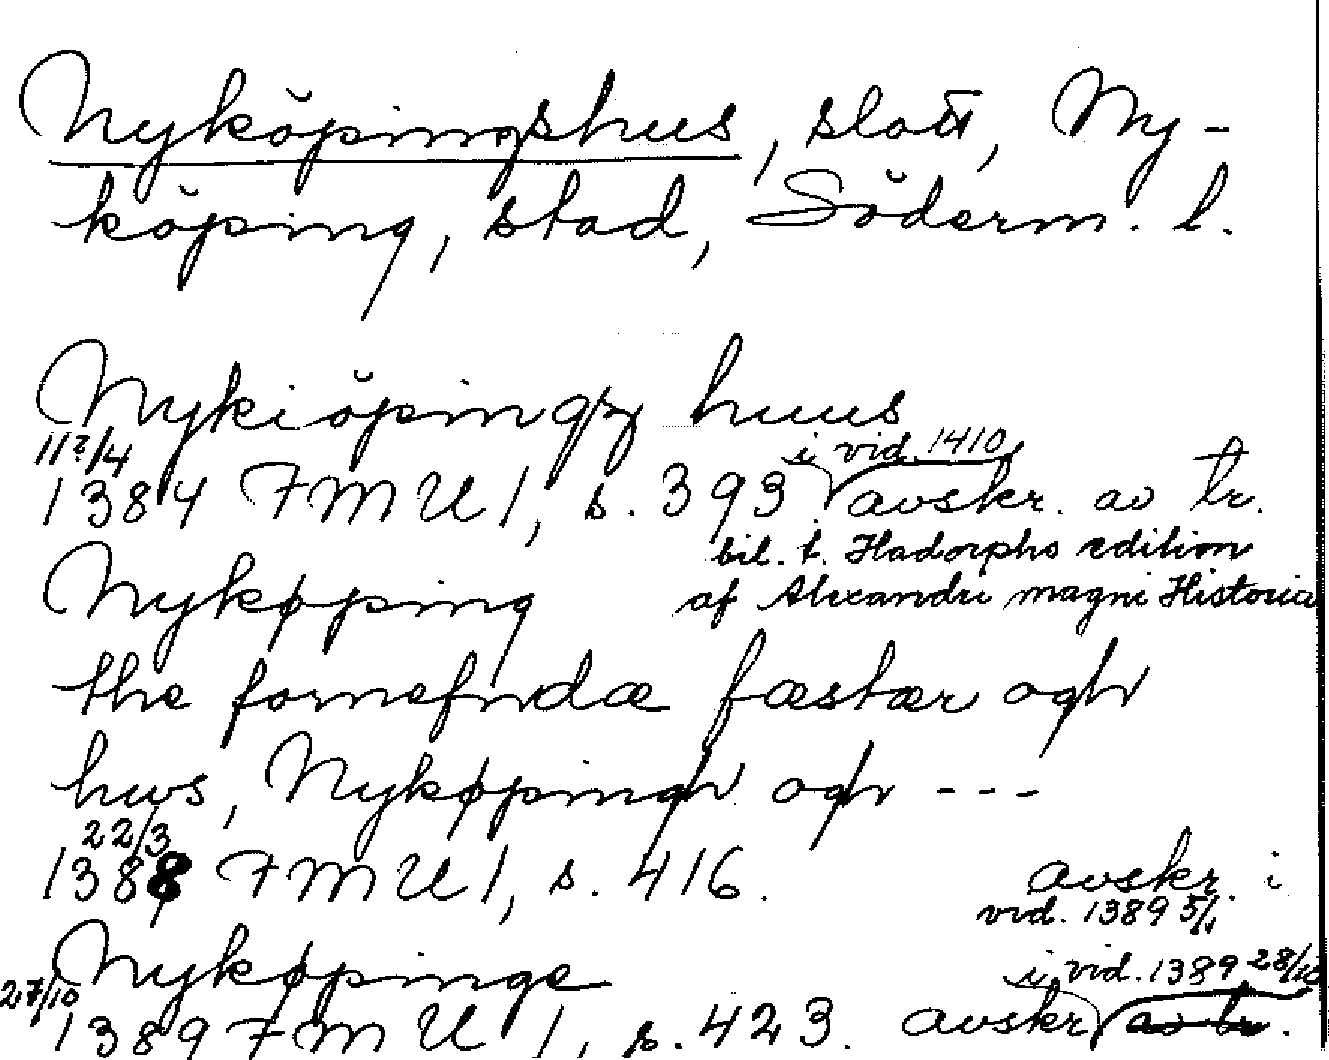 Nyköpingshus, slott, Ny-
köping, stad, Söderm. l.
Nykiöpingz huus
11?/4 i vid. 1410
1384 FMU 1, s. 393. avskr. av tr.
bil. t. Hadorphs edition
Nykøping af Alexandri magni Historia
the fornefndæ fæstær ogh
hws, Nykøpingh ogh ---
22/3
1388 FMU 1, s. 416. avskr. i
vid. 1389 5/1
Nykøpinge i vid. 1389 28/10
27/10
1389 FMU 1, s. 423. avskr. av tr.